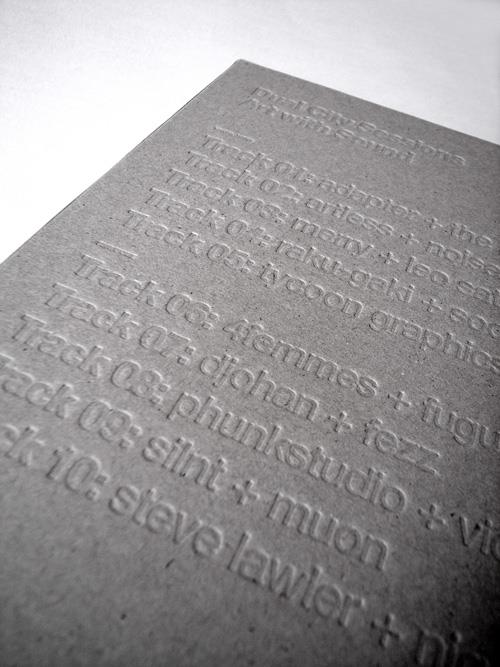 Dual City Sessions
Art with Sound
Track 01: adapter + the
Track 02: artless + noise
Track 03: merry + leo sa
Track 04: raku-gaki + soc
Track 05: tycoon graphics
Track 06: 4femmes + fugu
Track 07: djohan + fezz
Track 08: phunkstudio + vic
rack 09: silnt + muon
ck 10: steve lawler + ni